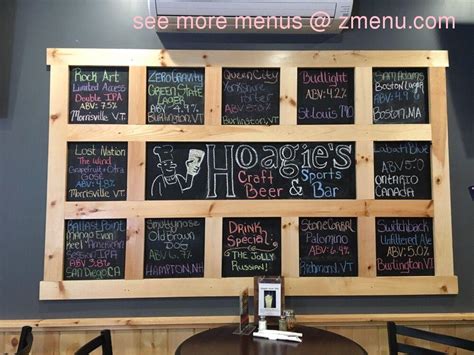 see more menus @ zmenu.com
Rock Art
Limited Access
Double IPA
ABV: 7.5%
Morrisville VT.
ZEROGRAVITY
GREEN STATE
LAGER
Burlington VT.
Queen City
Yorkshire
Porter
Burlington VT
Budlight
ABV: 4.2%
St. Louis MO
Sam Adams
Boston Lager
Boston, MA
Lost Nation
The Wind
Grapefruit + Citra
Gose
Morrisville VT
Hoagie's
Craft & Sports
Beer Bar
Labatt Blue
ABV: 5.0
ONTARIO
CANADA
Ballast Point
Mango Even
Keel American
Session IPA
ABV 3.8%
San Diego CA
Smuttynose
Old Brown
Dog
HAMPTON, NH
DRINK
Special:
THE JOLLY
RUSSIAN!
Stone Corral
Palomino
ABV: 6.9%
Richmond, VT
Switchback
Unfiltered Ale
ABV: 5.0%
Burlington VT